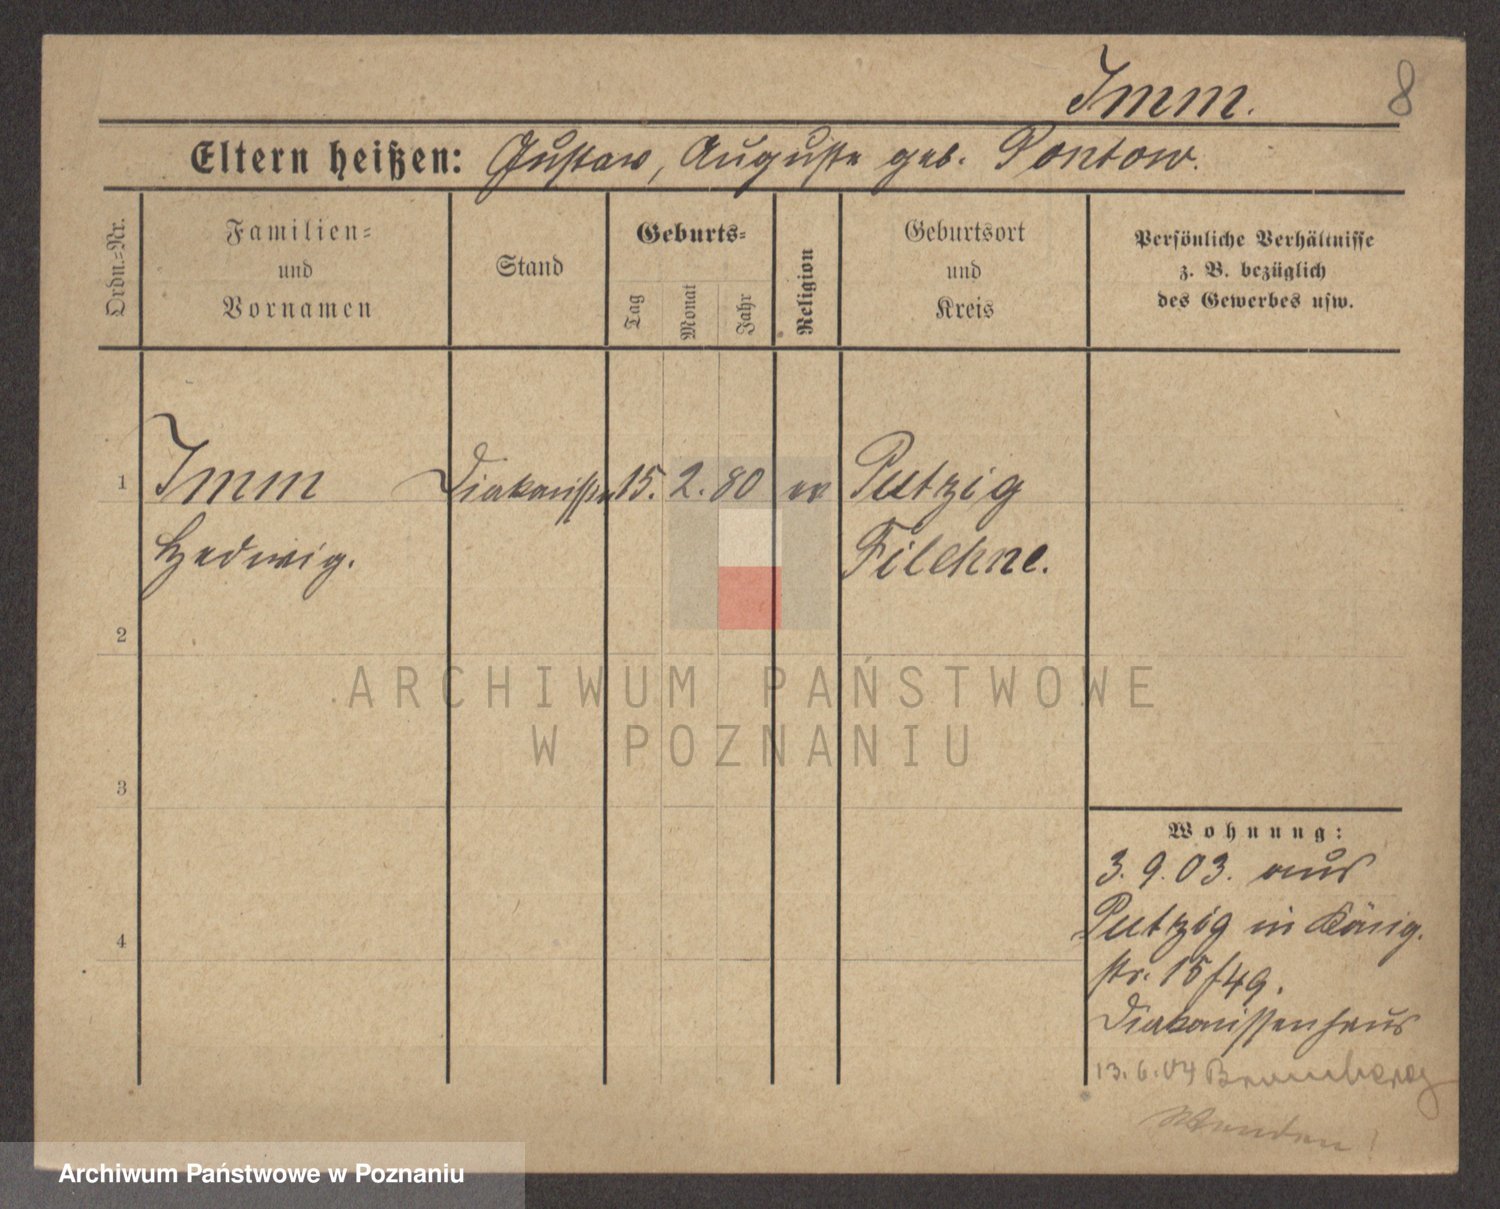 Imm.
8
Eltern heißen: Gustav, Auguste geb. Pontow.
Ordn.-Nr.
Familien-
und
Vornamen
Stand
Geburts-
Tag
Monat
Jahr
Religion
Geburtsort
und
Kreis
Persönliche Verhältnisse
z. B. bezüglich
des Gewerbes usw.
1 Imm Diakonissin 15. 2. 80 ev Putzig
Hedwig. Filehne.
2
3
4
Wohnung:
3. 9. 03. aus
Putzig in König.
str. 15/49.
Diakonissenhaus
13. 6. 04 Bromberg
Wenden!
ARCHIWUM PAŃSTWOWE
W POZNANIU
Archiwum Państwowe w Poznaniu